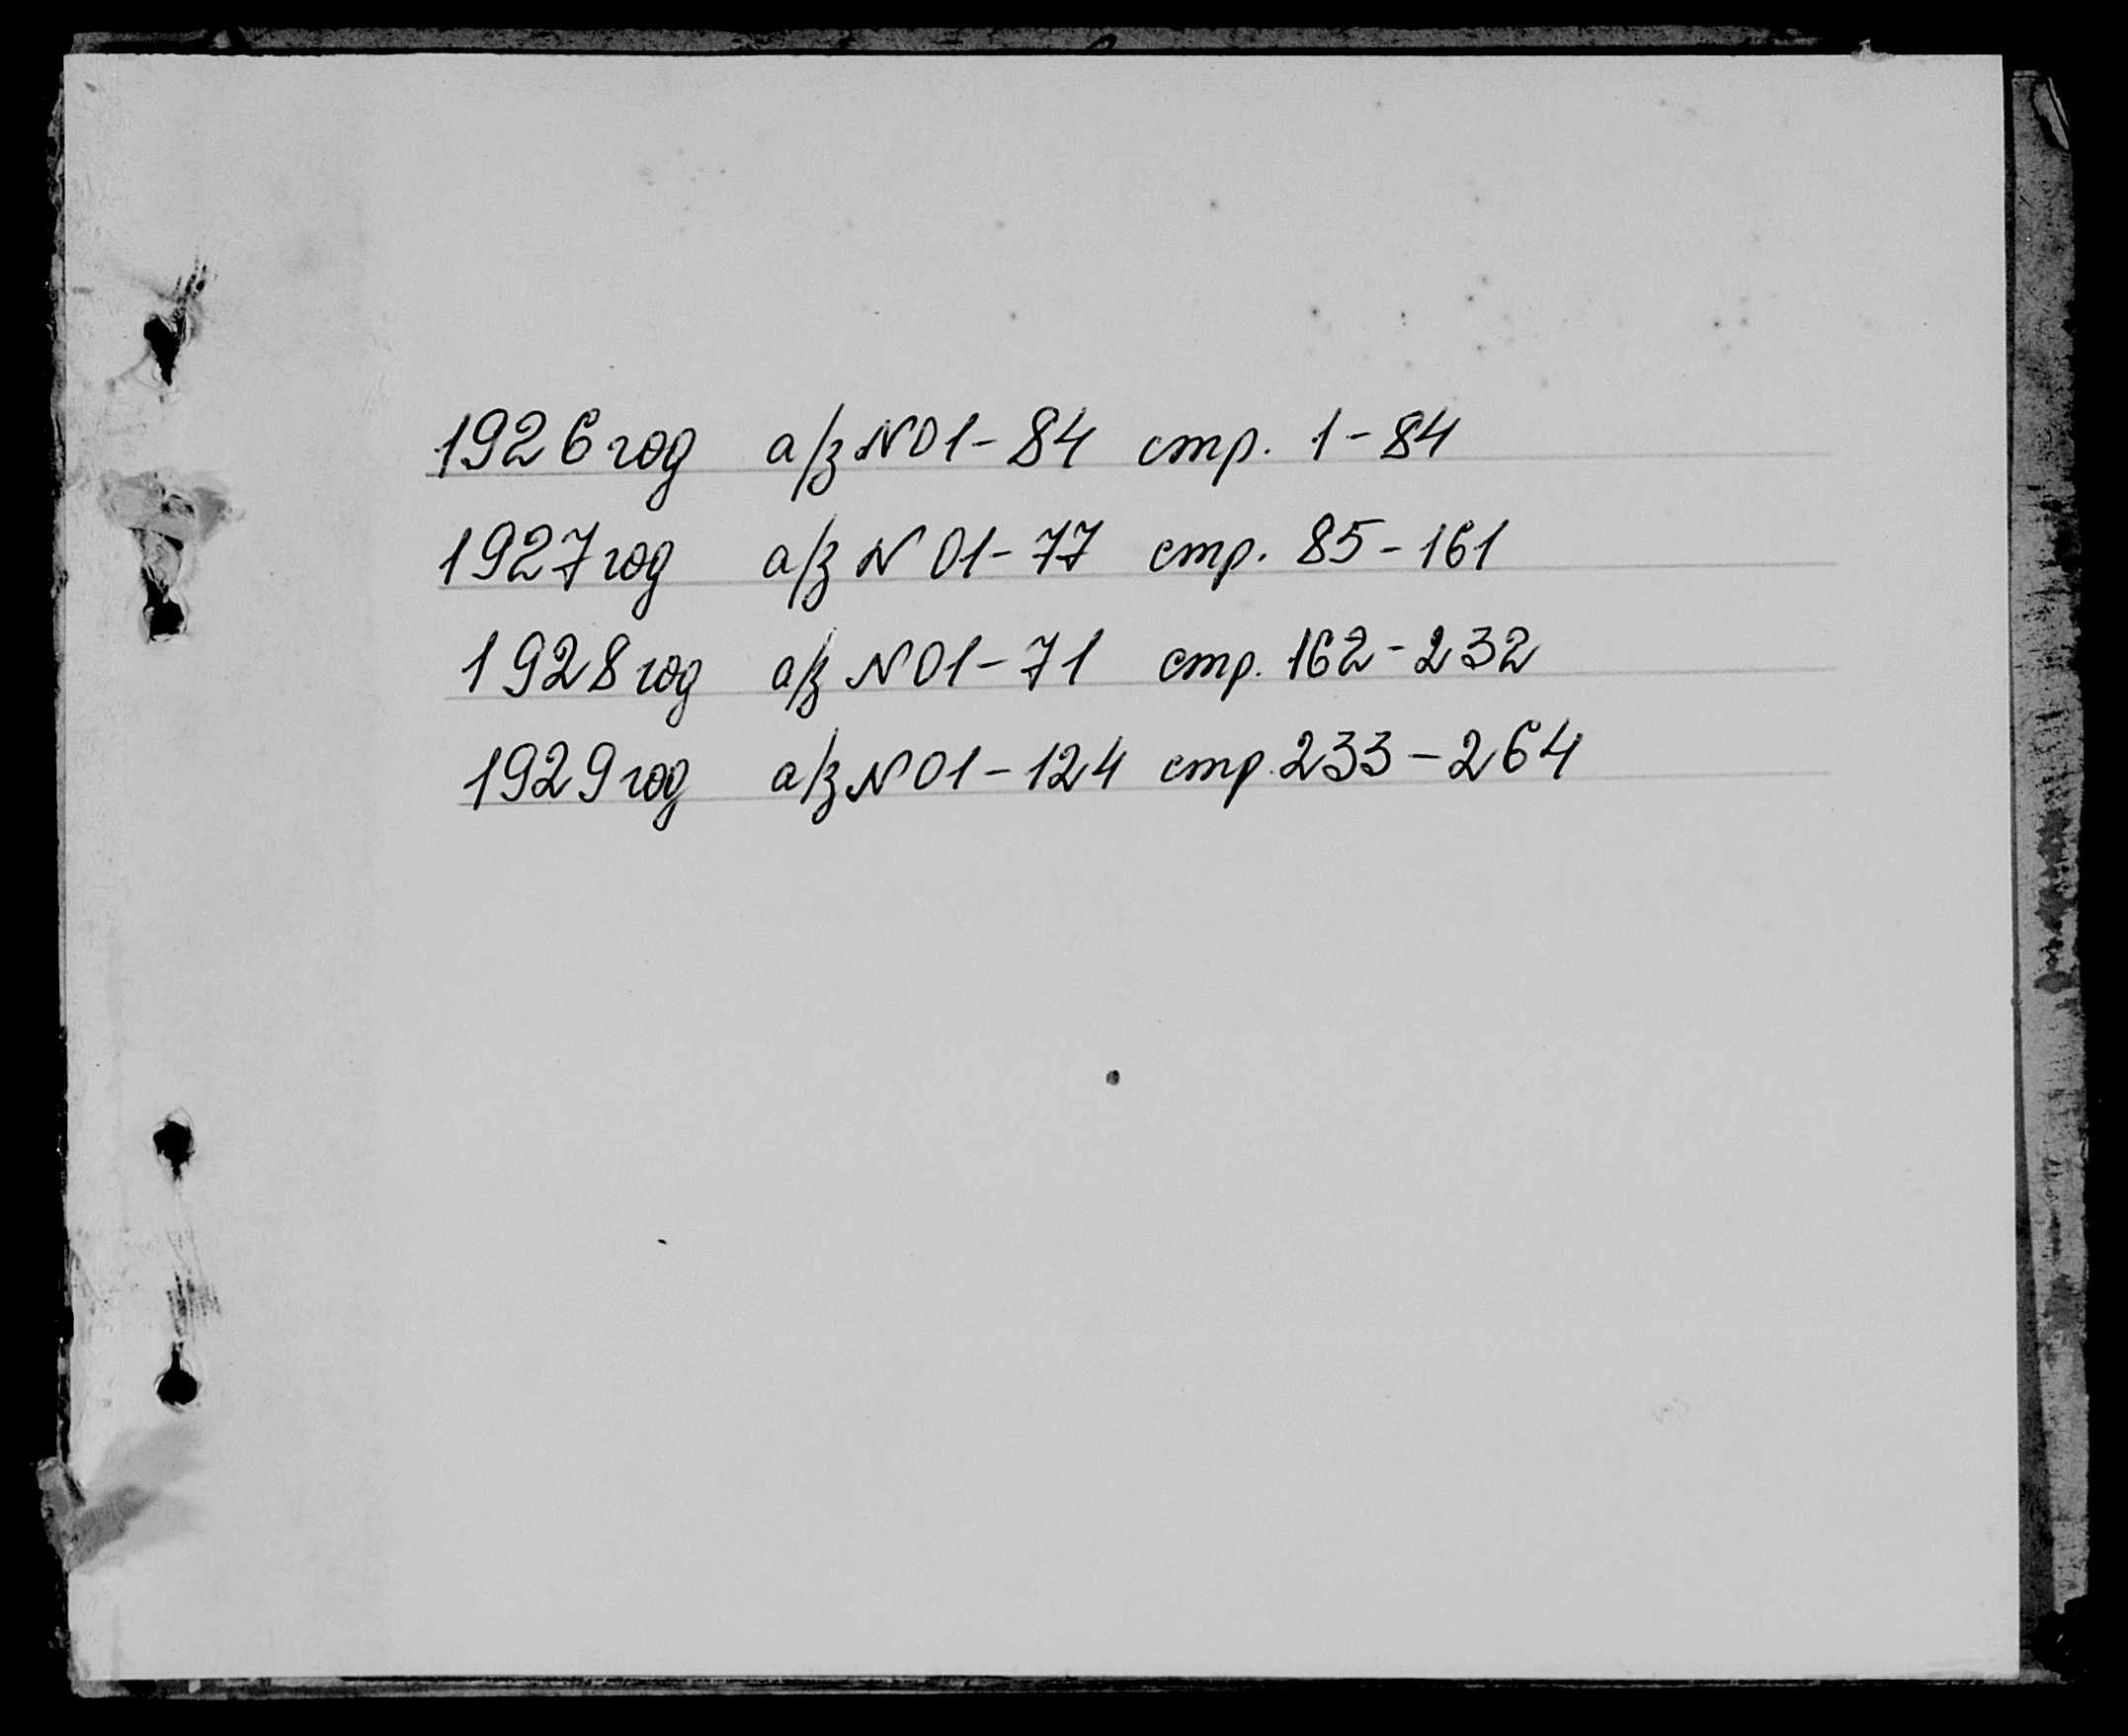 1926 год а/з N 01-84 стр. 1-84
1927 год а/з N 01-77 стр. 85-161
1928 год а/з N 01-71 стр. 162-232
1929 год а/з N 01-124 стр. 233-264